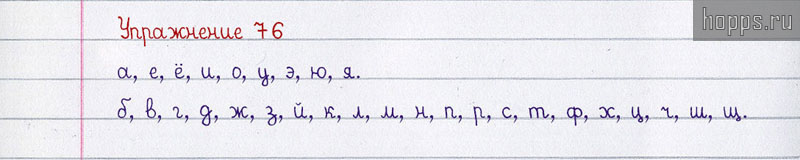 hopps.ru
Упражнение 76
а, е, ё, и, о, у, э, ю, я.
б, в, г, д, ж, з, й, к, л, м, н, п, р, с, т, ф, х, ц, ч, ш, щ.